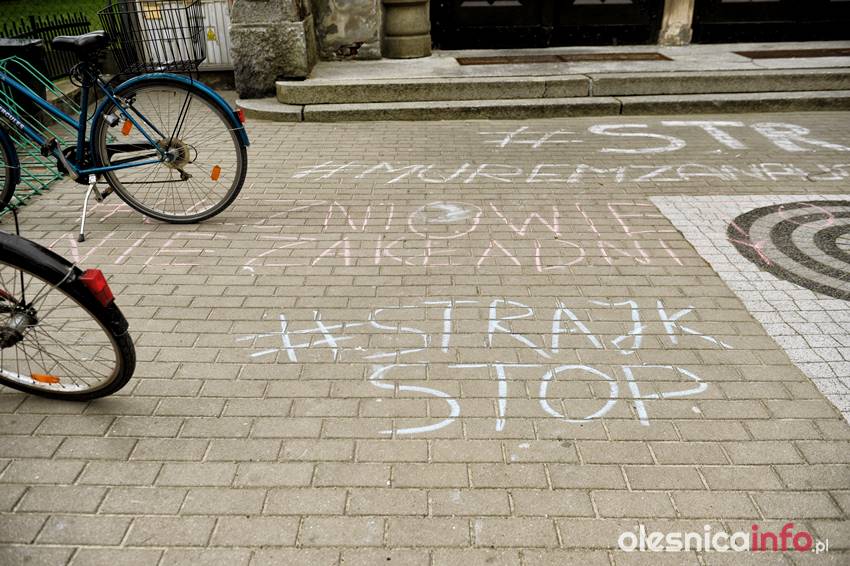 #STR
#MUREMZANA
ZNIOWIE
NIE ZAKŁADNI
##STRAJK
STOP
olesnicainfo.pl